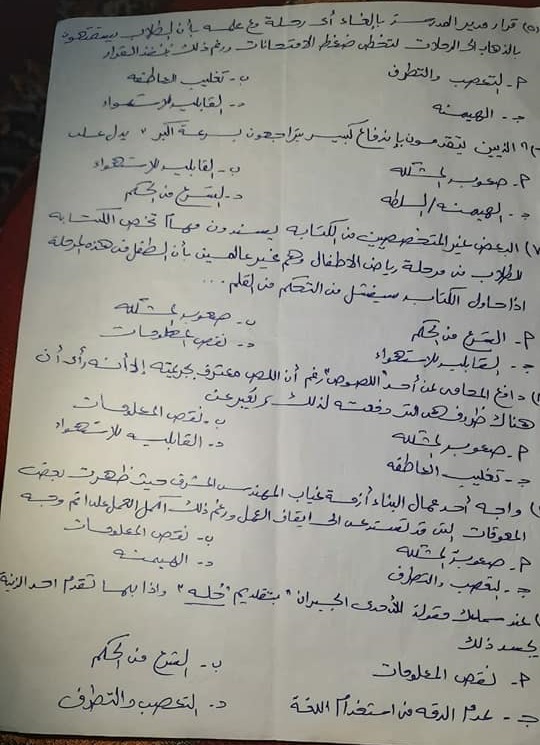 (٥) قرار مدير المدرسة بإلغاء أى رحلة مع علمه بأن الطلاب يستمتعون
بالذهاب إلى الرحلات لتخطى ضغط الامتحانات ورغم ذلك نفذ القرار
أ- التعصب والتطرف ب- تغليب العاطفة
ج- الهيمنة د- القابلية للاستهواء
"الذين يتقدمون بإندفاع كبير يتراجعون بسرعة أكبر" يدل على
أ- صعوبة المشكلة ب- القابلية للاستهواء
ج- الهيمنة / السلطة د- التسرع فى الحكم
٧) البعض غير المتخصصين فى الكتابة يسندون مهامًا تخص الكتابة
للطلاب فى مرحلة رياض الأطفال وهم غير عالمين بأن الطفل فى هذه المرحلة
اذا حاول الكتابة سيفشل فى التحكم فى القلم ...
أ- التسرع فى الحكم ب- صعوبة المشكلة
ج- القابلية للاستهواء د- نقص المعلومات
دافع المحامى عن أحد "اللصوص" رغم أن اللص معترف بجريمته إلا أنه رأى أن
هناك ظروف هى التى دفعته لذلك تعبر عن
أ- صعوبة المشكلة ب- نقص المعلومات
ج- تغليب العاطفة د- القابلية للاستهواء
واجه أحد عمال البناء أزمة غياب المهندس المشرف حيث ظهرت بعض
المعوقات التى قد تستدعى الى ايقاف العمل ورغم ذلك أكمل العمل على اتم وجه
أ- صعوبة المشكلة ب- نقص المعلومات
ج- التعصب والتطرف د- الهيمنة
عند سماعك مقولة لأحدى الجيران "بتقديم "حُله" واذا بها تقدم احد الانية
يجسد ذلك
أ- نقص المعلومات ب- التسرع فى الحكم
ج- عدم الدقة فى استخدام اللغة د- التعصب والتطرف